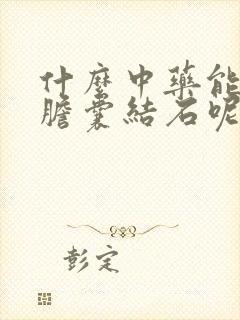 什麼中藥能
膽囊結石呢
彭定